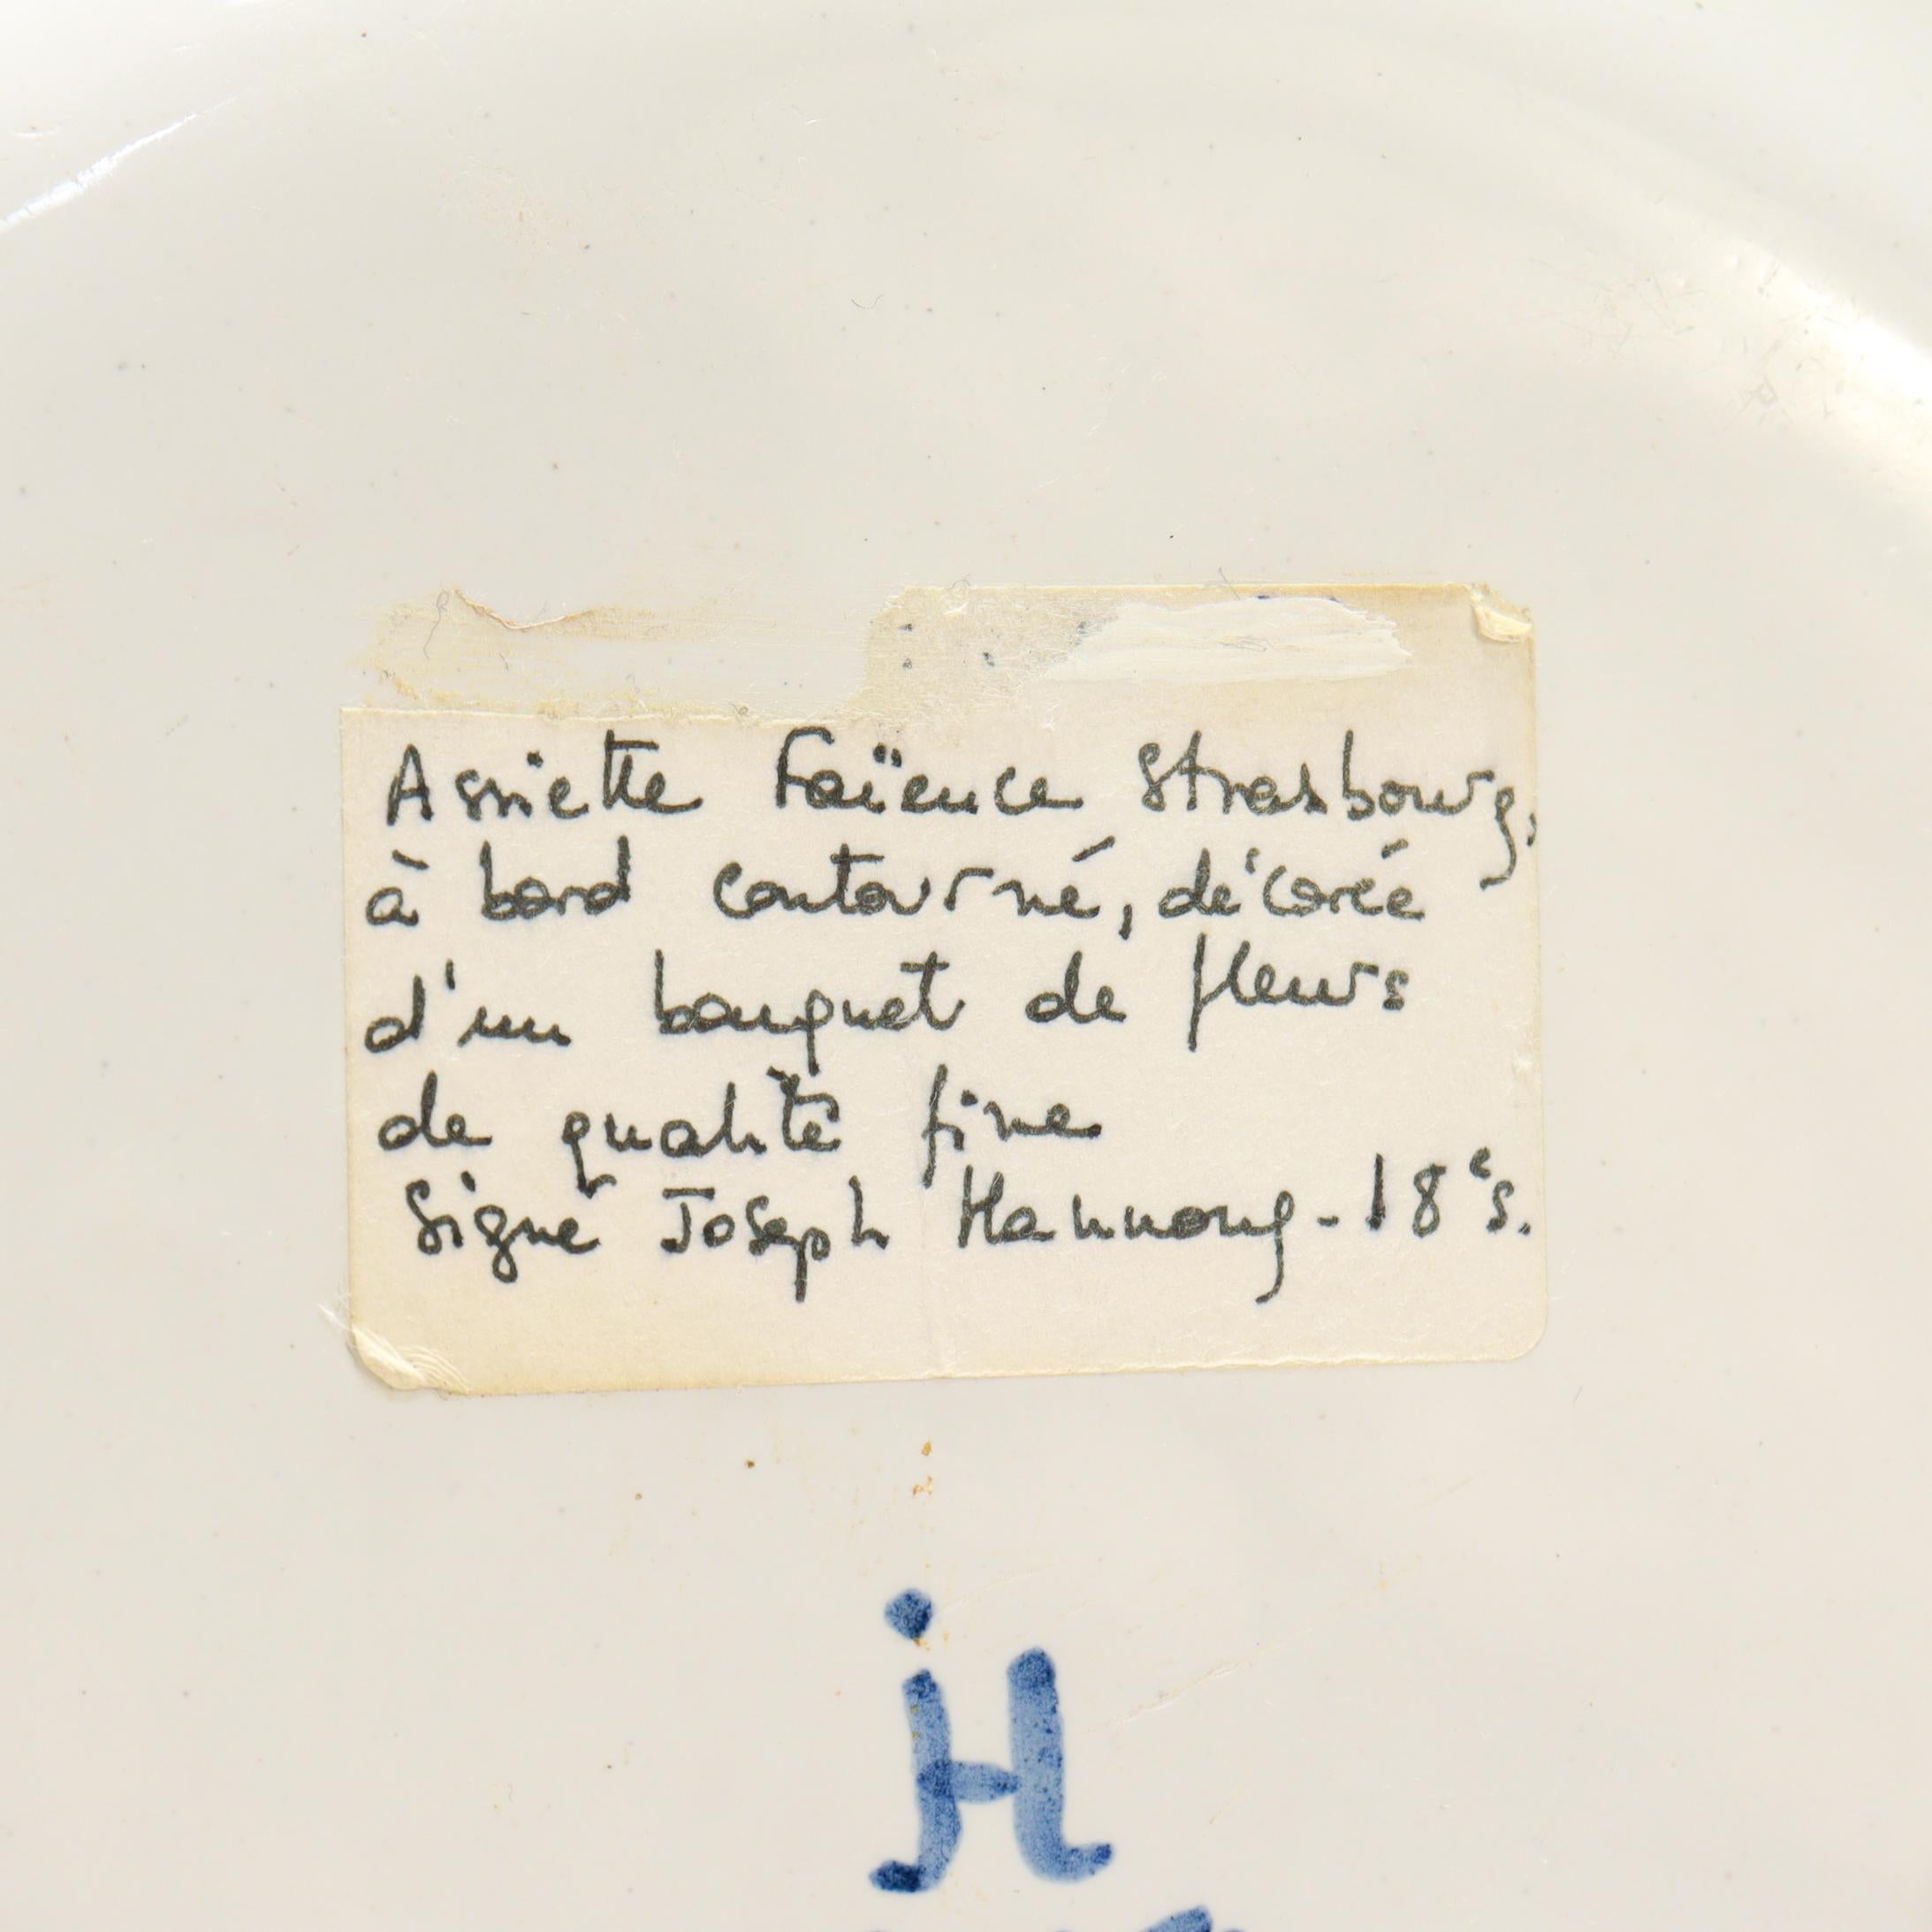 Assiette Faïence Strasbourg,
à bord contourné, décorée
d'un bouquet de fleurs
de qualité fine
Signé Joseph Hannong - 18e s.
jH